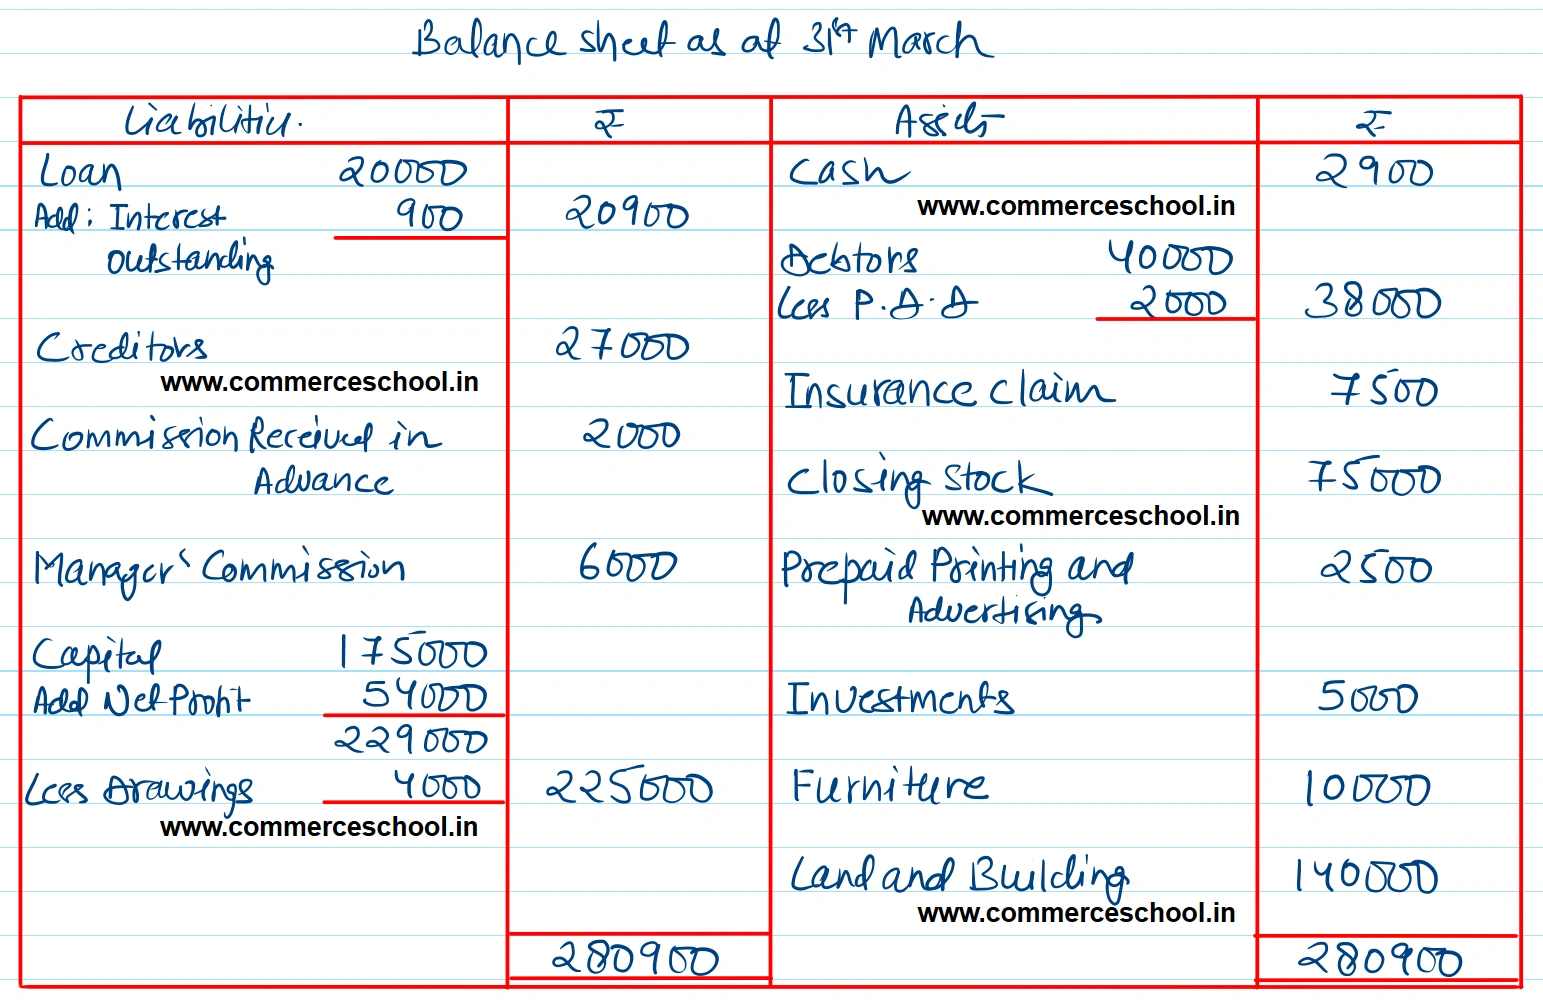 Balance sheet as at 31st March
Liabilities. ₹ Assets ₹
Loan 20000
Add: Interest 900 20900
outstanding
Creditors 27000
www.commerceschool.in
Commission Received in 2000
Advance
Manager' Commission 6000
Capital 175000
Add Net Profit 54000
229000
Less Drawings 4000 225000
www.commerceschool.in
280900
Cash 2900
www.commerceschool.in
Debtors 40000
Less P.D.D 2000 38000
Insurance claim 7500
Closing Stock 75000
www.commerceschool.in
Prepaid Printing and 2500
Advertising
Investments 5000
Furniture 10000
Land and Building 140000
www.commerceschool.in
280900